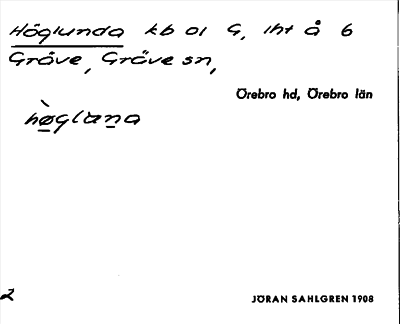 Höglunda kb ol G, iht å 6
Gräve, Gräve sn,
Örebro hd, Örebro län
hø̀glana
2
JÖRAN SAHLGREN 1908